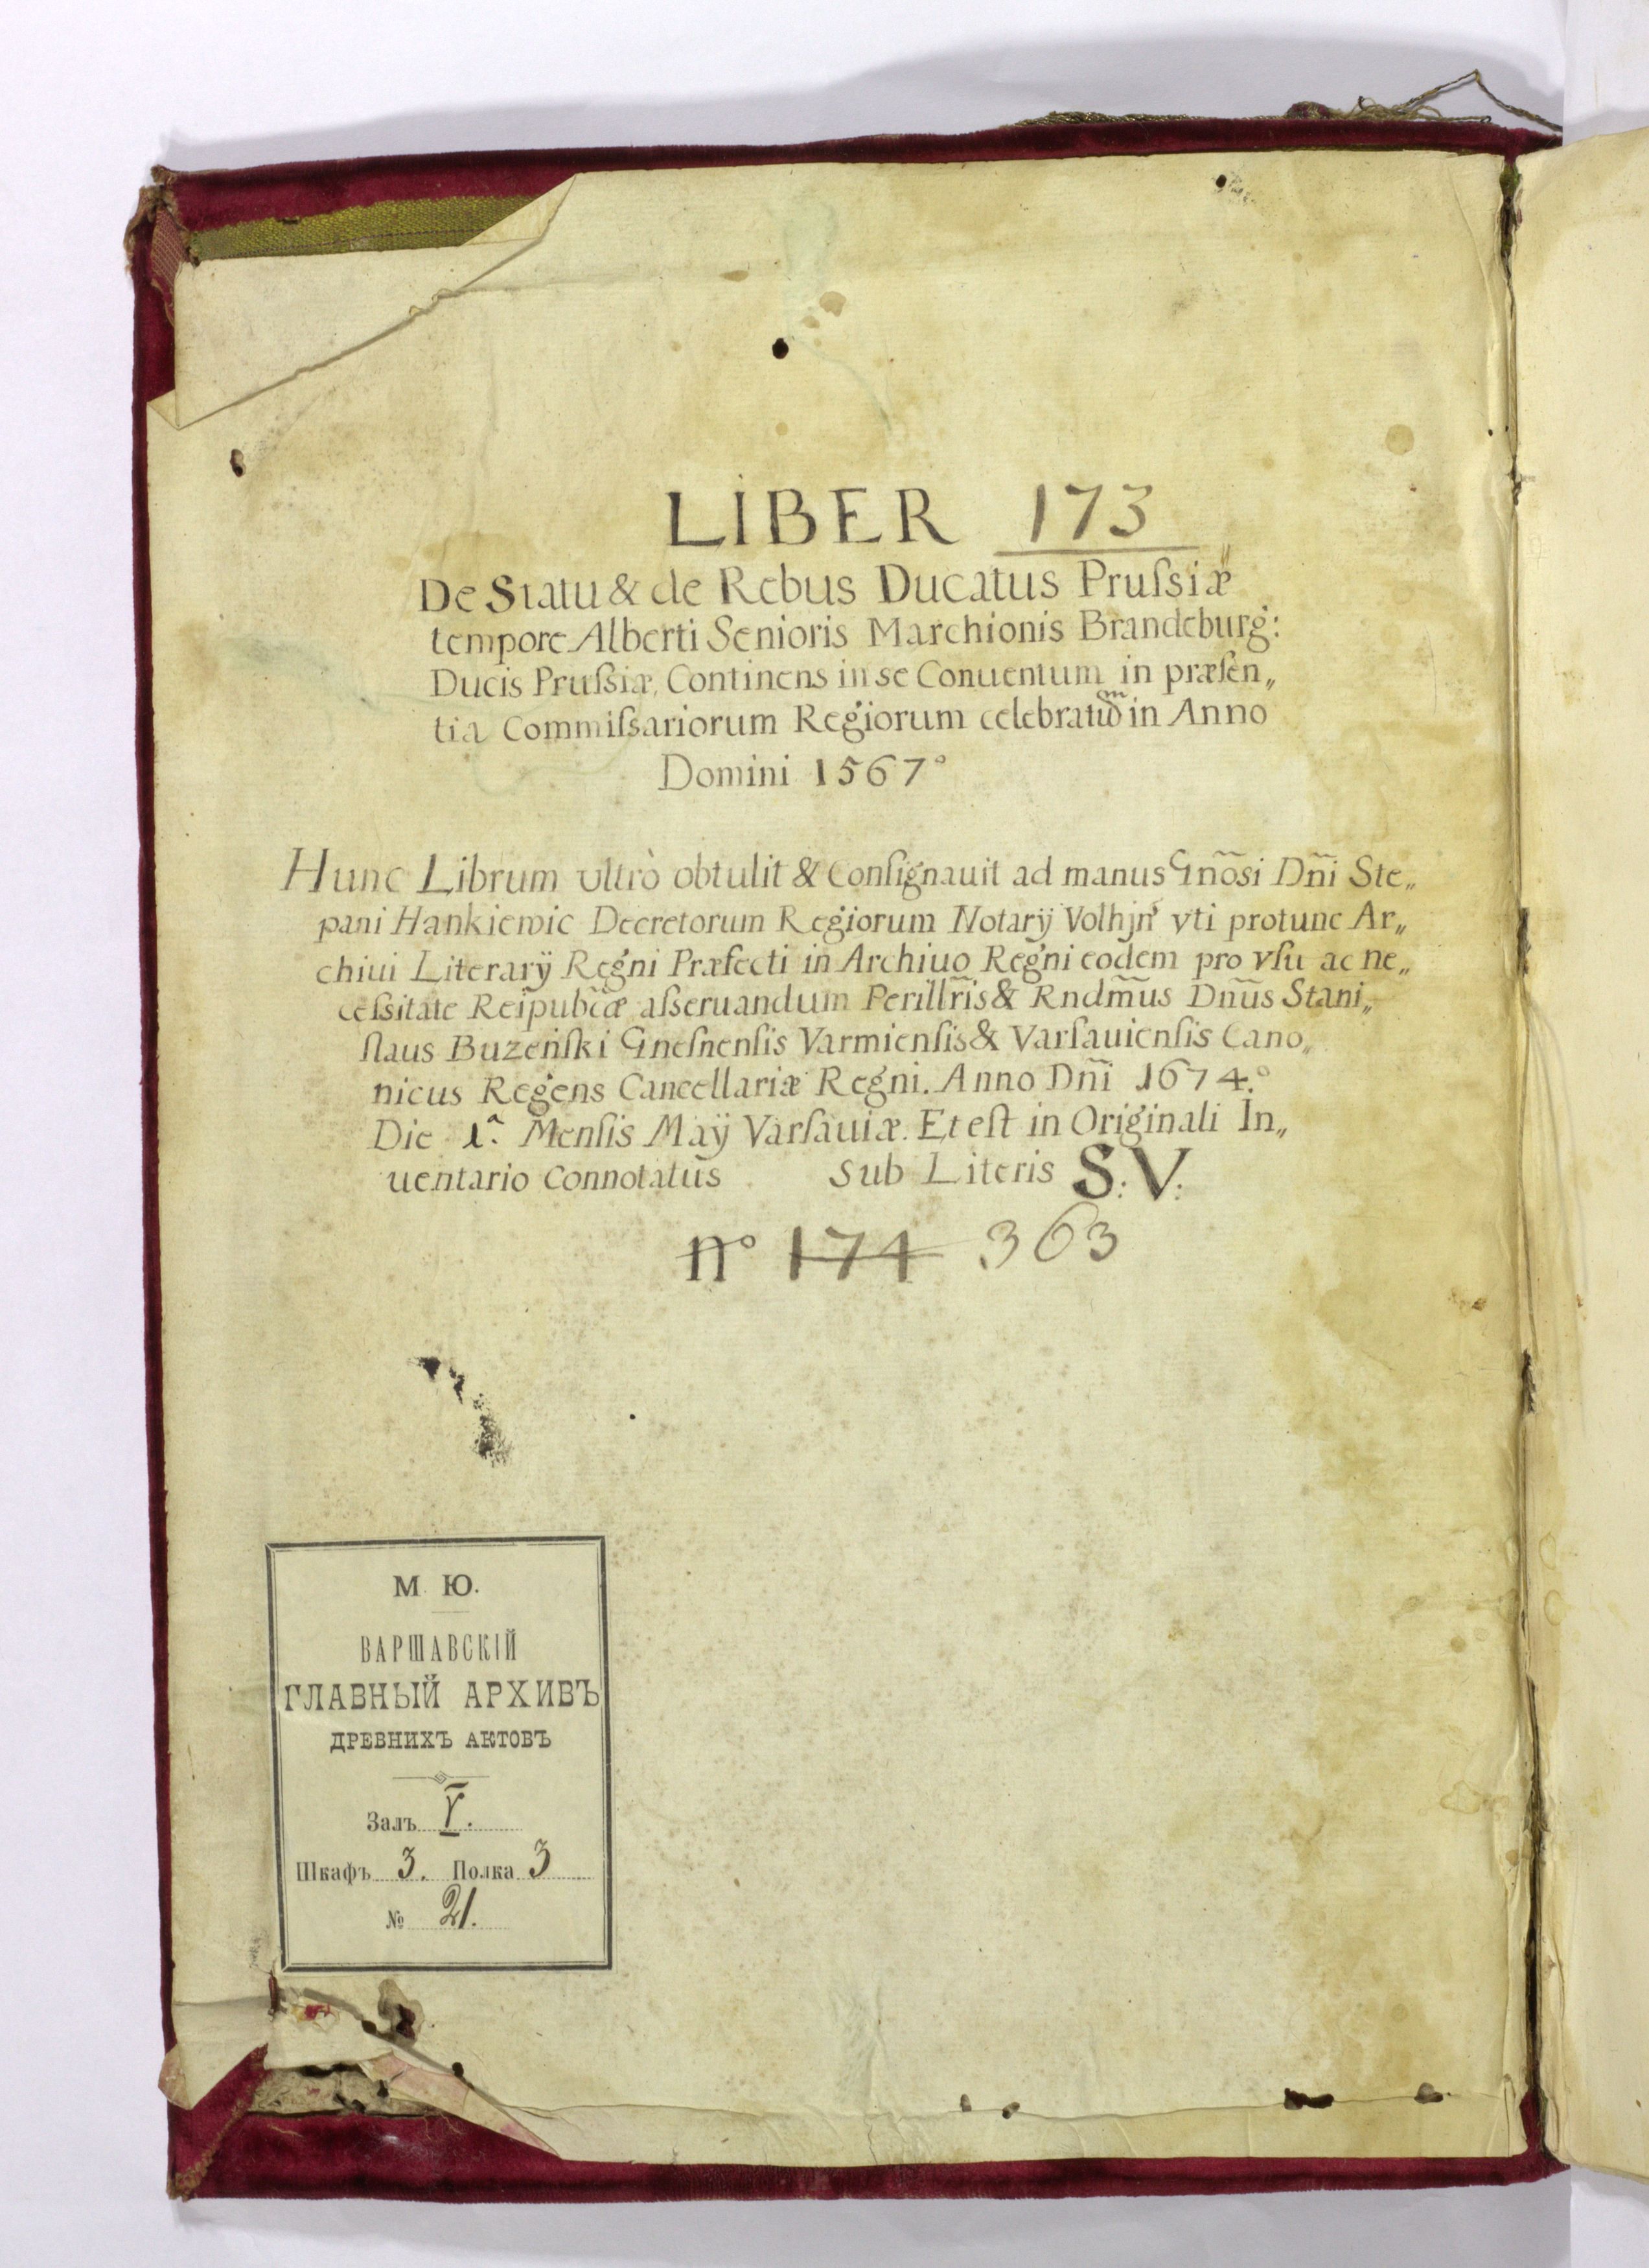 LIBER 173
De Statu & de Rebus Ducatus Prußiæ
tempore Alberti Senioris Marchionis Brandeburg:
Ducis Prußiæ, Continens in se Conuentum in præsen„
tia Commißariorum Regiorum celebratũm in Anno
Domini 1567°
Hunc Librum vltrò obtulit & Consignauit ad manus Gnõsi Dñi Ste„
pani Hankiewic Decretorum Regiorum Notarÿ Volhjñ vti protunc Ar„
chiui Literarÿ Regni Præfecti in Archiuo Regni eodem pro vsu ac ne„
ceßitate Reipub̃cæ aßeruandum Perillr̃is & Rndm̃us Dnũs Stani„
slaus Buzeński Gnesnensis Varmiensis & Varsauiensis Cano„
nicus Regens Cancellariæ Regni. Anno Dñi 1674.°
Die 1.ª Mensis Maÿ Varsauiæ. Et est in Originali In„
uentario Connotatus sub Literis S: V:
n° 174 363
М. Ю.
ВАРШАВСКІЙ
ГЛАВНЫЙ АРХИВЪ
ДРЕВНИХЪ АКТОВЪ
Залъ V.
Шкафъ 3. Полка 3
№ 21.